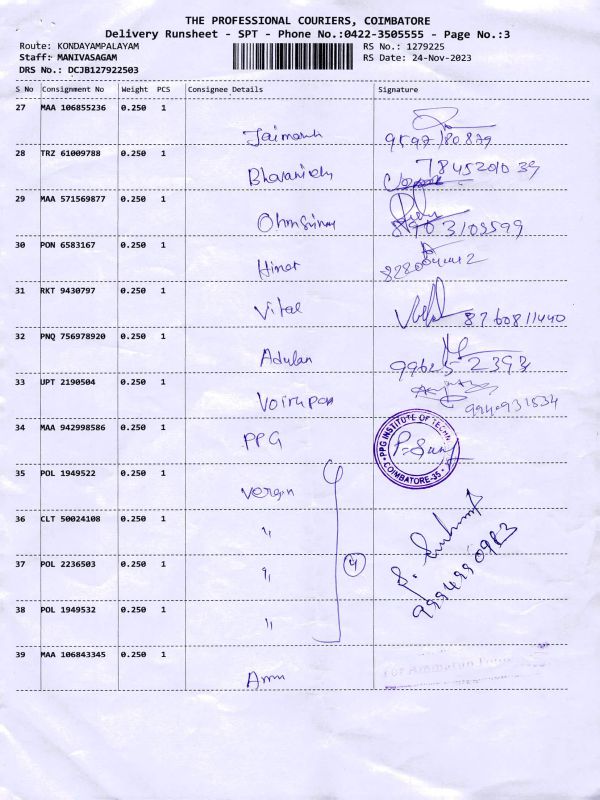 THE PROFESSIONAL COURIERS, COIMBATORE
Delivery Runsheet - SPT - Phone No.:0422-3505555 - Page No.:3
Route: KONDAYAMPALAYAM RS No.: 1279225
Staff: MANIVASAGAM RS Date: 24-Nov-2023
DRS No.: DCJB127922503
S No Consignment No Weight PCS Consignee Details Signature
27 MAA 106855236 0.250 1
28 TRZ 61009788 0.250 1
7845201039
29 MAA 571569877 0.250 1
30 PON 6583167 0.250 1
31 RKT 9430797 0.250 1
Vital 8760811440
32 PNQ 756978920 0.250 1
33 UPT 2190504 0.250 1
34 MAA 942998586 0.250 1
PPG
PPG INSTITUTE OF TECHN.
COIMBATORE-35
35 POL 1949522 0.250 1
Vergin
36 CLT 50024108 0.250 1
"
37 POL 2236503 0.250 1
" 4
9994990983
38 POL 1949532 0.250 1
"
39 MAA 106843345 0.250 1